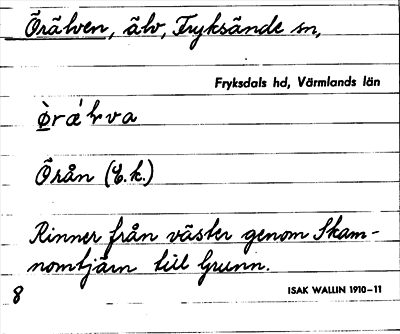 Örälven, älv, Fryksände sn,
Fryksdals hd, Värmlands län
ò̱rǽlva
Örån (E.k.)
Rinner från väster genom Skam-
nomtjärn till Grunn.
8
ISAK WALLIN 1910–11